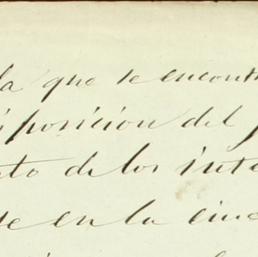 la que se encontr
sposicion del p
to de los inte
de en la ciu